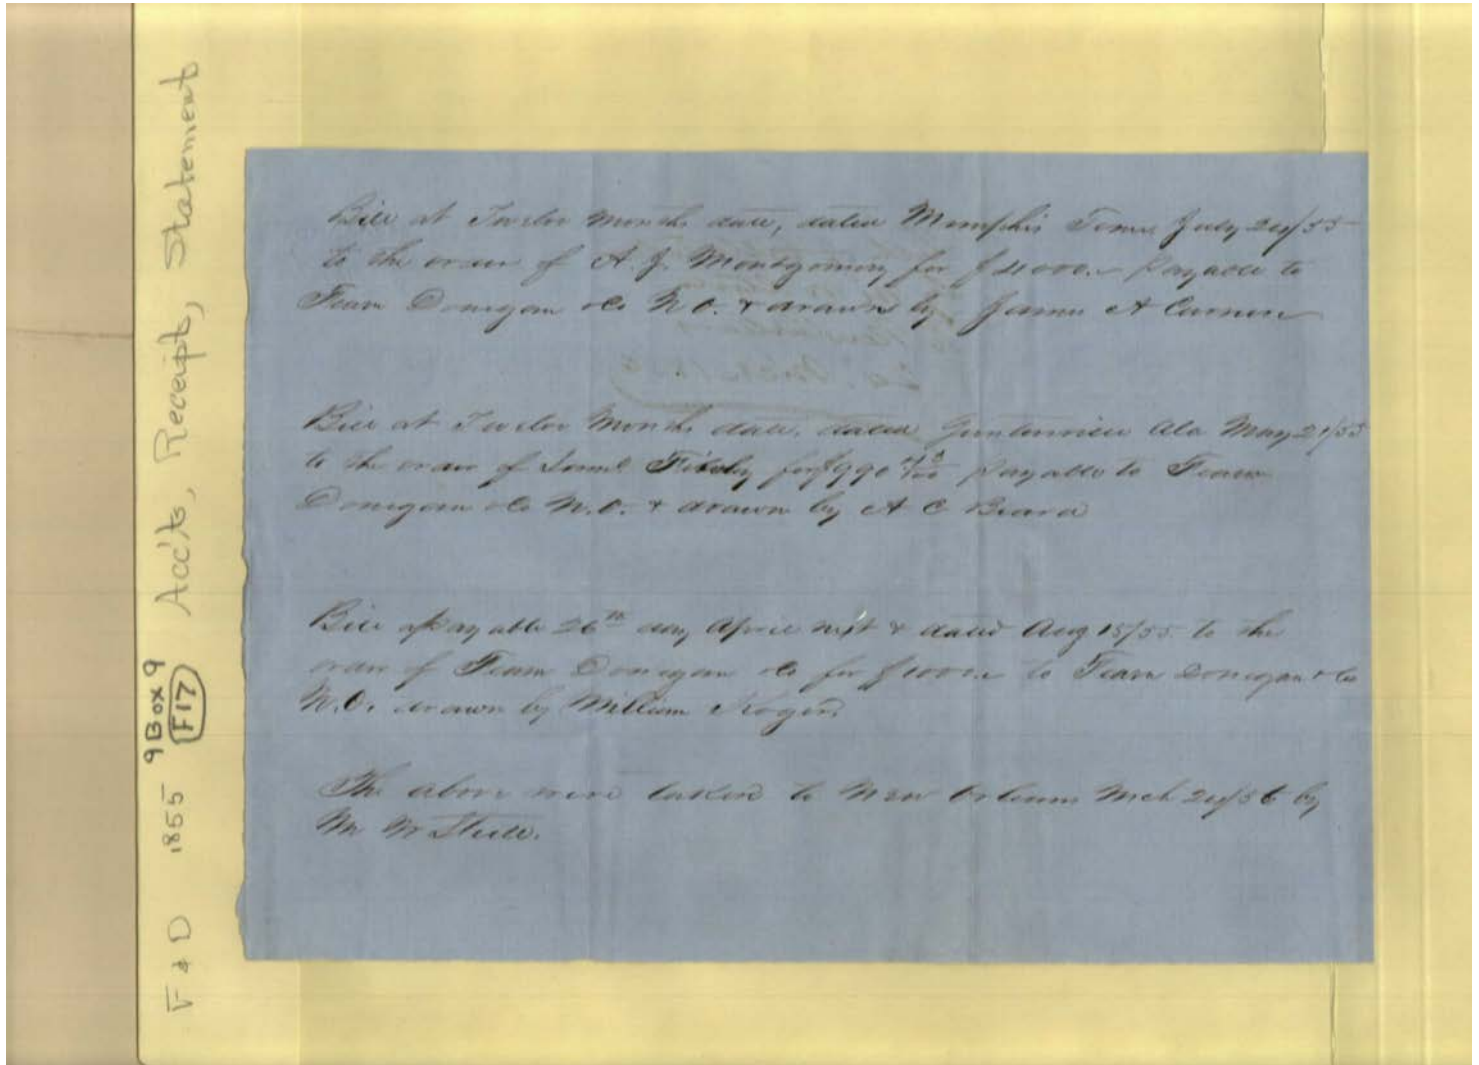 F & D 1855 9Box9 Acc'ts, Receipt, Statement
F17
Bill at Twelve Months date, dated Memphis Tenn July 24/55
to the order of A. J. Montgomery for $4000.- Payable to
Fearn Donegan &Co N.O. & drawn by James A
Bill at Twelve Months date, dated Guntersville Ala May 21/55
to the order of Saml for $990 Payable to Fearn
Donegan &Co N.O. & drawn by A C Beard
Bill payable 26th day April next & dated Aug 15/55 to the
order of Fearn Donegan &Co for to Fearn Donegan & Co
N.O. drawn by William Koger
The above were taken to New Orleans Mch 24/56 by